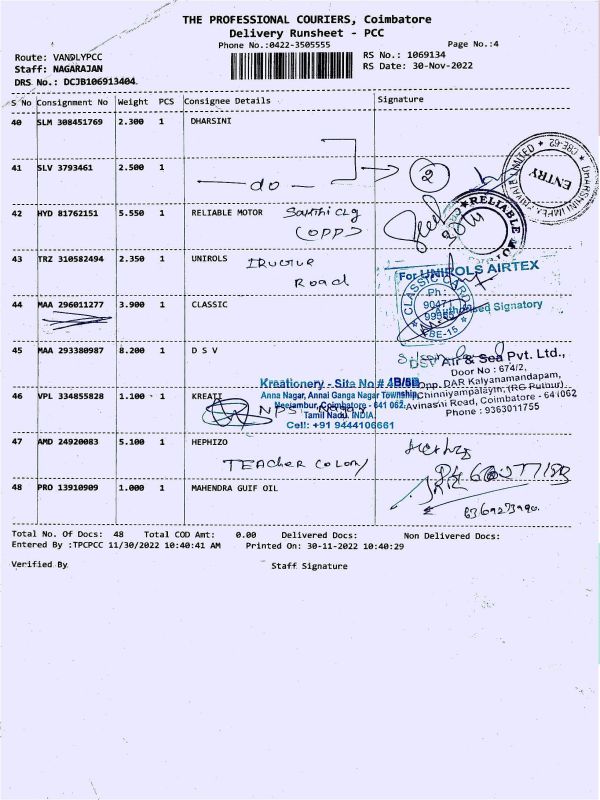 THE PROFESSIONAL COURIERS, Coimbatore
Delivery Runsheet - PCC
Phone No.:0422-3505555
Page No.:4
Route: VANDLYPCC
RS No.: 1069134
Staff: NAGARAJAN
RS Date: 30-Nov-2022
DRS No.: DCJB106913404
S No Consignment No Weight PCS Consignee Details Signature
40 SLM 308451769 2.300 1 DHARSINI
41 SLV 3793461 2.500 1
do
2
CBE-62
ENTRY
42 HYD 81762151 5.550 1 RELIABLE MOTOR
(OPP)
RELIABLE
43 TRZ 310582494 2.350 1 UNIROLS
Road
For UNIROLS AIRTEX
CLASSIC CARD
Ph :
Authorised Signatory
CBE-15
44 MAA 296011277 3.900 1 CLASSIC
45 MAA 293380987 8.200 1 D S V
DSV Air & Sea Pvt. Ltd.,
Door No : 674/2,
Opp. DAR Kalyanamandapam,
Chinniyampalaym, (RG Puthur),
Avinashi Road, Coimbatore - 641 062
Phone : 9363011755
46 VPL 334855828 1.100 1 KREATI
Kreationery - Site No # 4B/5B
Anna Nagar, Annai Ganga Nagar Township,
Neelambur, Coimbatore - 641 062,
Tamil Nadu. INDIA.
Cell: +91 9444106661
NPS Nagar
47 AMD 24920083 5.100 1 HEPHIZO
TEACHER COLONY
48 PRO 13910909 1.000 1 MAHENDRA GUIF OIL
Total No. Of Docs: 48 Total COD Amt: 0.00 Delivered Docs: Non Delivered Docs:
Entered By :TPCPCC 11/30/2022 10:40:41 AM Printed On: 30-11-2022 10:40:29
Verified By Staff Signature